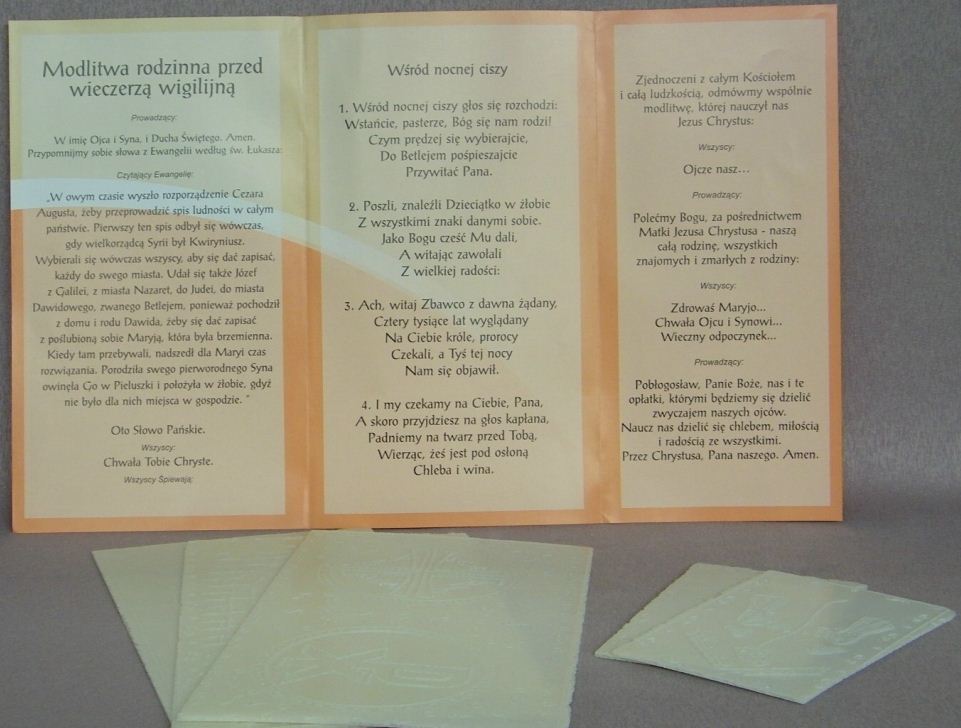 Modlitwa rodzinna przed
wieczerzą wigilijną
Prowadzący:
W imię Ojca i Syna, i Ducha Świętego. Amen.
Przypomnijmy sobie słowa z Ewangelii według św. Łukasza:
Czytający Ewangelię:
„W owym czasie wyszło rozporządzenie Cezara
Augusta, żeby przeprowadzić spis ludności w całym
państwie. Pierwszy ten spis odbył się wówczas,
gdy wielkorządcą Syrii był Kwiryniusz.
Wybierali się wówczas wszyscy, aby się dać zapisać,
każdy do swego miasta. Udał się także Józef
z Galilei, z miasta Nazaret, do Judei, do miasta
Dawidowego, zwanego Betlejem, ponieważ pochodził
z domu i rodu Dawida, żeby się dać zapisać
z poślubioną sobie Maryją, która była brzemienna.
Kiedy tam przebywali, nadszedł dla Maryi czas
rozwiązania. Porodziła swego pierworodnego Syna
owinęła Go w Pieluszki i położyła w żłobie, gdyż
nie było dla nich miejsca w gospodzie. "
Oto Słowo Pańskie.
Wszyscy:
Chwała Tobie Chryste.
Wszyscy Śpiewają:
Wśród nocnej ciszy
1. Wśród nocnej ciszy głos się rozchodzi:
Wstańcie, pasterze, Bóg się nam rodzi!
Czym prędzej się wybierajcie,
Do Betlejem pośpieszajcie
Przywitać Pana.
2. Poszli, znaleźli Dzieciątko w żłobie
Z wszystkimi znaki danymi sobie.
Jako Bogu cześć Mu dali,
A witając zawołali
Z wielkiej radości:
3. Ach, witaj Zbawco z dawna żądany,
Cztery tysiące lat wyglądany
Na Ciebie króle, prorocy
Czekali, a Tyś tej nocy
Nam się objawił.
4. I my czekamy na Ciebie, Pana,
A skoro przyjdziesz na głos kapłana,
Padniemy na twarz przed Tobą,
Wierząc, żeś jest pod osłoną
Chleba i wina.
Zjednoczeni z całym Kościołem
i całą ludzkością, odmówmy wspólnie
modlitwę, której nauczył nas
Jezus Chrystus:
Wszyscy:
Ojcze nasz...
Prowadzący:
Polećmy Bogu, za pośrednictwem
Matki Jezusa Chrystusa - naszą
całą rodzinę, wszystkich
znajomych i zmarłych z rodziny:
Wszyscy:
Zdrowaś Maryjo...
Chwała Ojcu i Synowi...
Wieczny odpoczynek...
Prowadzący:
Pobłogosław, Panie Boże, nas i te
opłatki, którymi będziemy się dzielić
zwyczajem naszych ojców.
Naucz nas dzielić się chlebem, miłością
i radością ze wszystkimi.
Przez Chrystusa, Pana naszego. Amen.